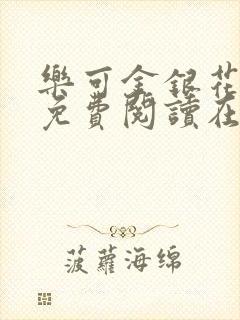 樂可金銀花
免費閱讀在
菠蘿海綿